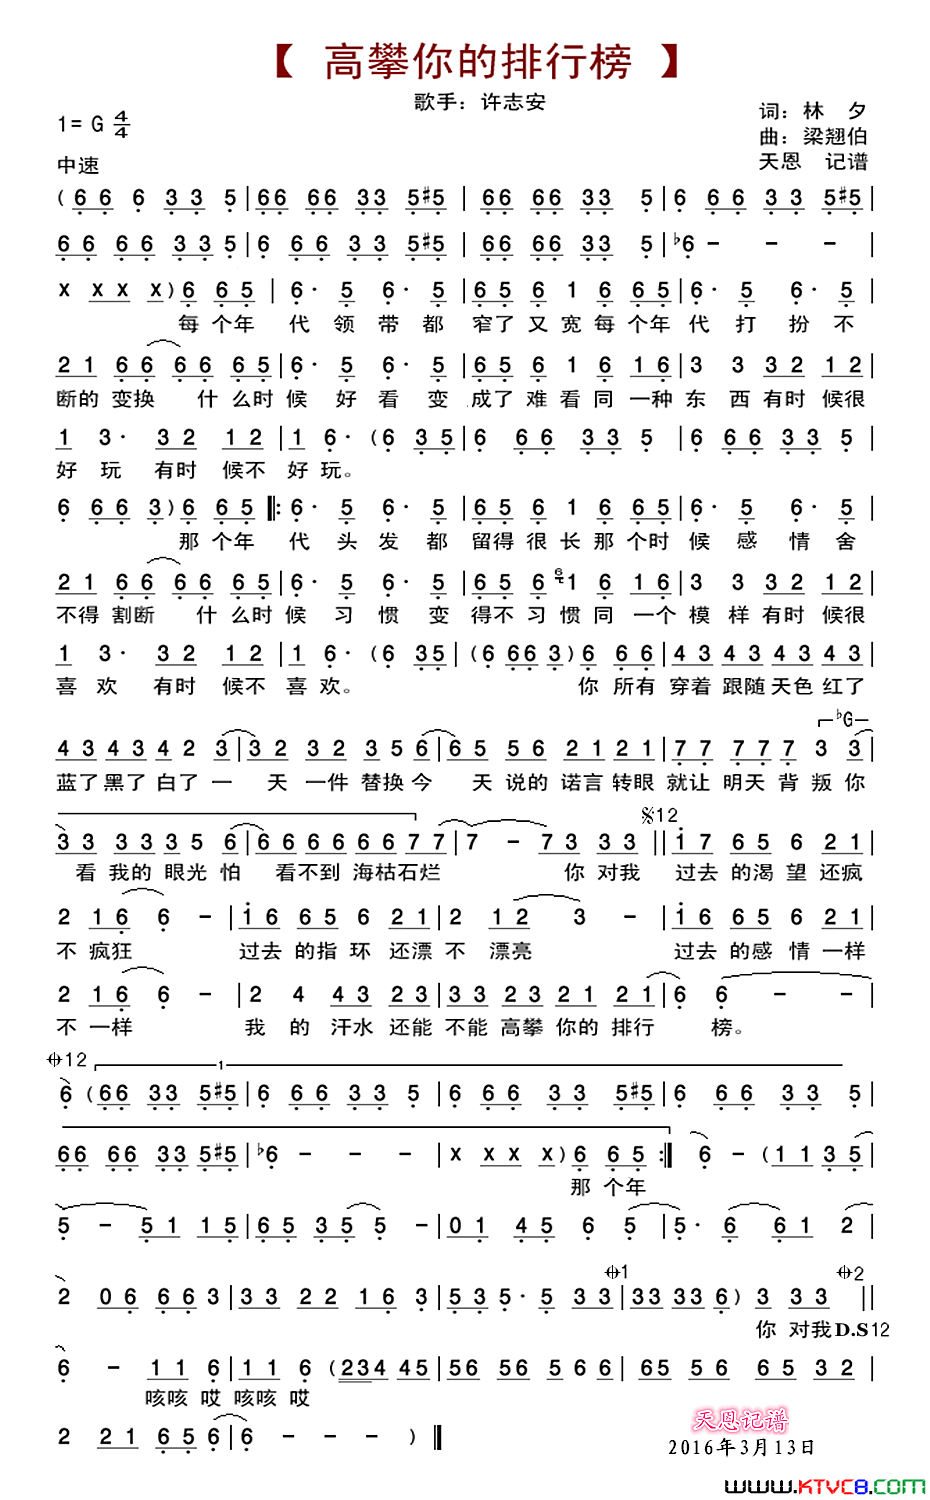 【 高攀你的排行榜 】
歌手：许志安
1= G 4/4
词：林 夕
曲：梁翘伯
中速
天恩 记谱
( 6 6 6 3 3 5 | 66 66 33 5#5 | 66 66 33 5 | 6 6 6 3 3 5#5 |
6 6 6 6 3 3 5 | 6 6 6 3 3 5#5 | 66 66 33 5 | ♭6 - - - |
X X X X ) 6 6 5 | 6· 5 6· 5 | 6 5 6 1 6 6 5 | 6· 5 6· 5 |
每 个年 代 领 带 都 窄了 又 宽 每 个年 代 打 扮 不
2 1 6 6 6 6 6 5 | 6· 5 6· 5 | 6 5 6 1 6 1 6 | 3 3 3 2 1 2 |
断的 变换 什 么时 候 好 看 变 成了 难 看 同 一种 东 西 有时 候很
1 3· 3 2 1 2 | 1 6· ( 6 3 5 | 6 6 6 3 3 5 | 6 6 6 3 3 5 |
好 玩 有时 候不 好 玩。
6 6 6 3 ) 6 6 5 ‖: 6· 5 6· 5 | 6 5 6 1 6 6 5 | 6· 5 6· 5 |
那 个年 代 头 发 都 留得 很 长 那 个时 候 感 情 舍
2 1 6 6 6 6 6 5 | 6· 5 6· 5 | 6 5 6 6 1 6 1 6 | 3 3 3 2 1 2 |
不得 割断 什 么时 候 习 惯 变 得不 习 惯 同 一个 模 样 有时 候很
1 3· 3 2 1 2 | 1 6· ( 6 3 5 | ( 6 6 6 3 ) 6 6 6 | 4 3 4 3 4 3 4 3 |
喜 欢 有时 候不 喜 欢。 你 所有 穿着 跟随 天色 红了
♭G
4 3 4 3 4 2 3 | 3 2 3 2 3 5 6 | 6 5 5 6 2 1 2 1 | 7 7 7 7 7 3 3 |
蓝了 黑了 白了 一 天 一件 替换 今 天 说的 诺言 转眼 就让 明天 背 叛 你
𝄋12
3 3 3 3 3 5 6 | 6 6 6 6 6 6 7 7 | 7 - 7 3 3 3 ‖ 1 7 6 5 6 2 1 |
看 我的 眼光 怕 看不到 海枯石烂 你 对我 过去 的渴 望 还疯
2 1 6 6 - | 1 6 6 5 6 2 1 | 2 1 2 3 - | 1 6 6 5 6 2 1 |
不 疯狂 过去 的指 环 还漂 不 漂亮 过去 的感 情 一样
2 1 6 6 - | 2 4 4 3 2 3 | 3 3 2 3 2 1 2 1 | 6 6 - - |
不 一样 我 的 汗水 还能 不能 高攀 你的 排行 榜。
𝄌12 1
6 ( 66 33 5#5 | 6 6 6 3 3 5 | 6 6 6 3 3 5#5 | 6 66 33 5 |
66 66 33 5#5 | ♭6 - - - | X X X X ) 6 6 5 :‖ 6 - ( 1 1 3 5 |
那 个年
5 - 5 1 1 5 | 6 5 3 5 5 - | 0 1 4 5 6 5 | 5· 6 6 1 2 |
𝄌1 𝄌2
2 0 6 6 6 3 | 3 3 2 2 1 6 3 | 5 3 5· 5 3 3 | 33 33 6 ) 3 3 3 ‖
你 对我 D.S12
6 - 1 1 6 | 1 1 6 ( 234 45 | 56 56 5 6 6 | 65 56 5 3 2 |
咳咳 哎 咳咳 哎
2 2 1 6 5 6 | 6 - - - ) ‖
天恩记谱
2016年3月13日
www.KTVC8.com